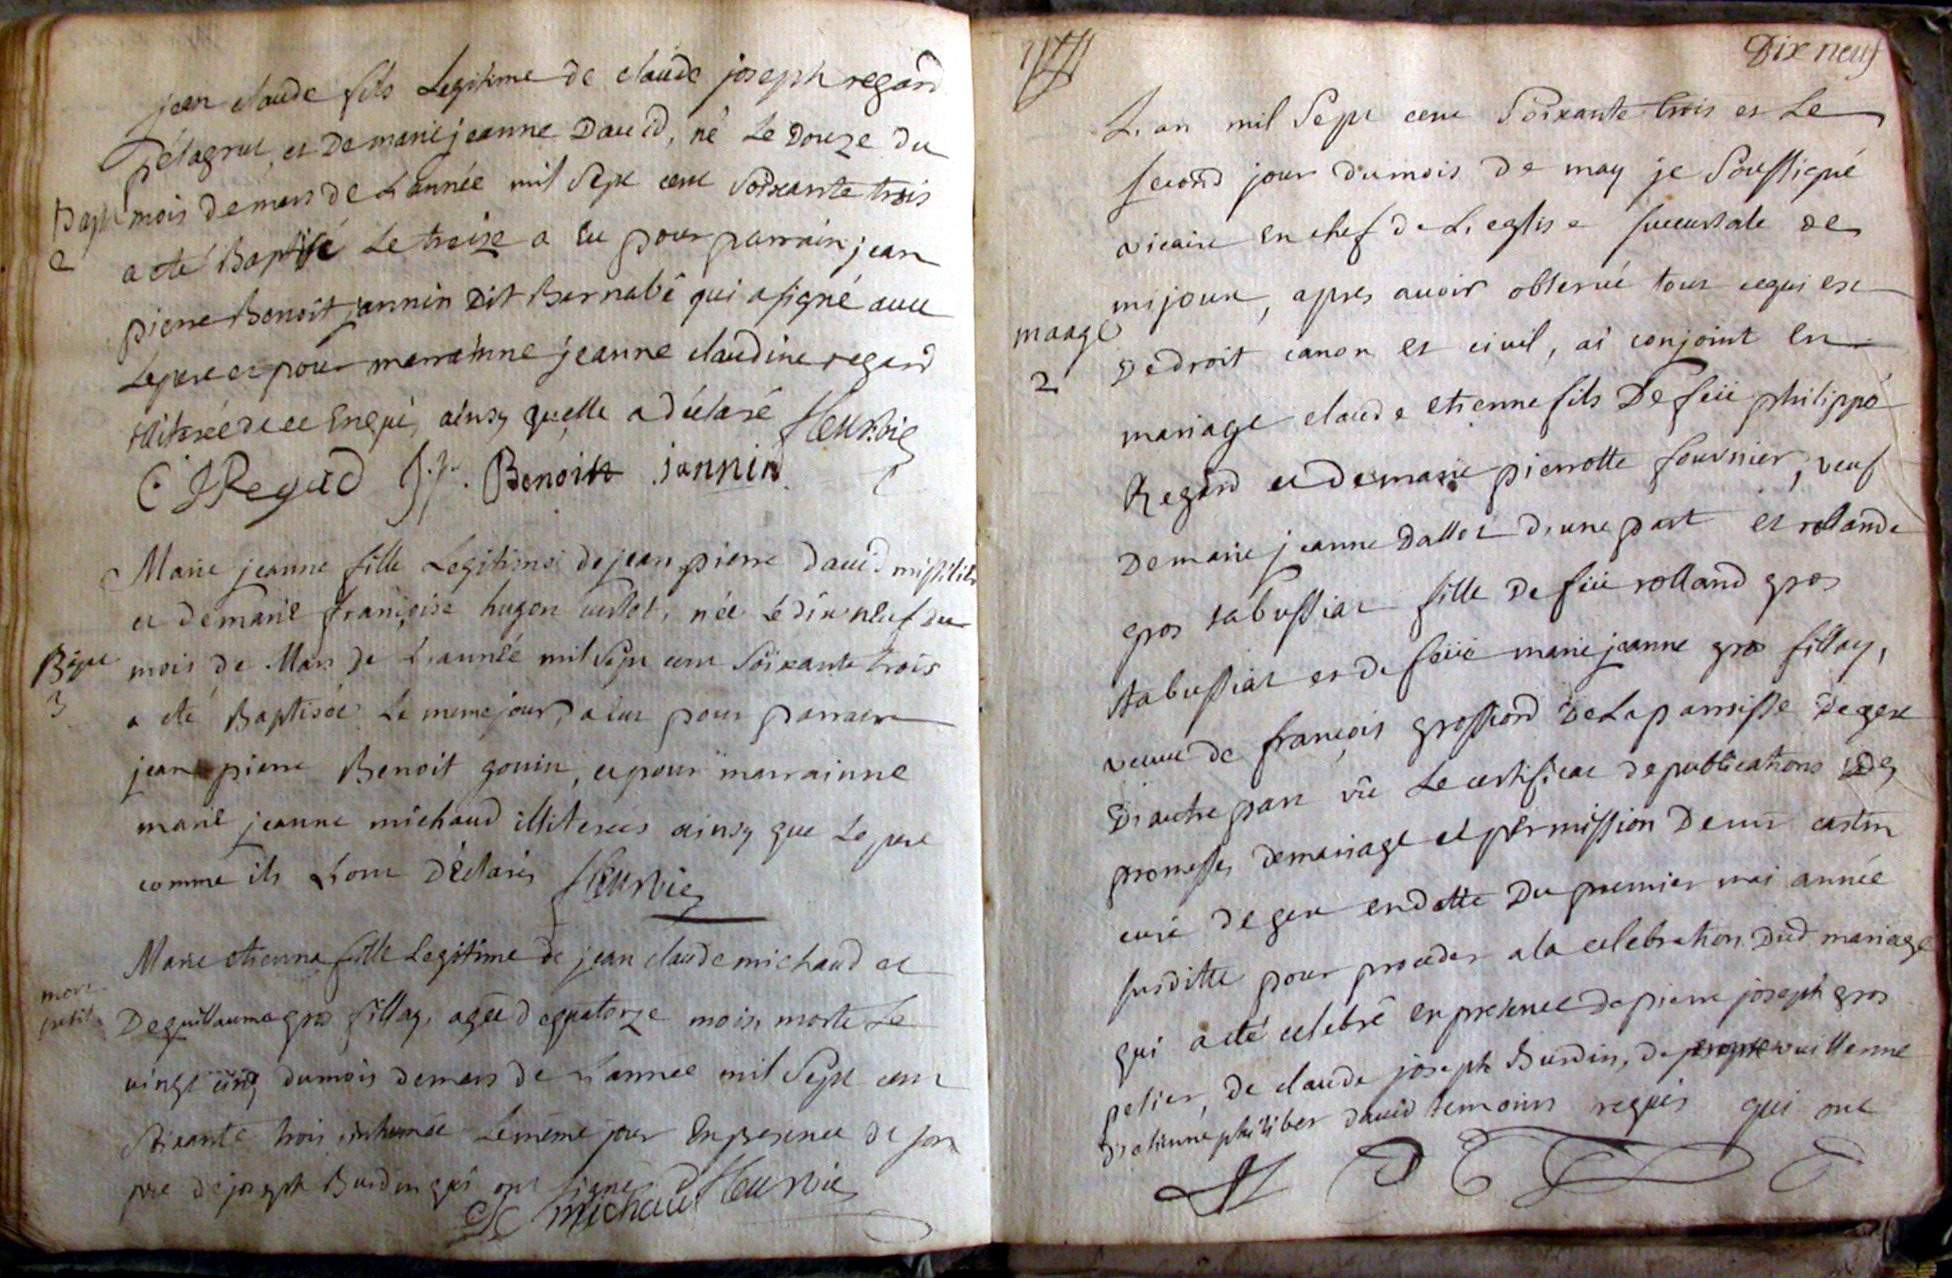 jean claude fils Legitime de claude joseph regard
pélagrut et de marie jeanne David, né Le Douze du
Bapt
mois de mars de L'année mil Sept cent Soixante trois
2
a été Baptisé Le treize a eu pour parrain jean
pierre Benoit jannin Dit Barnabé qui a signé avec
Le pere et pour marrainne jeanne claudine regard
illiterée de ce Enquis, ainsy qu'elle a déclaré
C J Regard J.p. Benoitt jannin
Marie jeanne fille Legitime de jean pierre David
et de marie françoise hugon, née Le dix neuf du
mois de Mars de L'année mil Sept cent Soixante trois
3
a été Baptisée Le meme jour, a eut pour parrain
jean pierre Benoit gouin, et pour marrainne
marie jeanne michaud illiterées ainsy que Le pere
comme ils L'ont Déclarés
Marie etienna fille Legitime de jean claude michaud et
mort
De guillauma gros fillay, agée de quatorze mois, morte Le
vingt cinq du mois de mars de L'année mil Sept cent
Soixante trois inhumée Le méme jour En presence de son
pere de joseph Burdin qui ont signé
michaud
Dix neuf
L'an mil Sept cent Soixante trois et Le
second jour du mois de may je Soussigné
vicaire en chef de L'eglise succursale de
mijoux, apres avoir observé tout ce qui est
maage
De droit canon et civil, ai conjoint En
2
mariage claude etienne fils De feü philippe
Regard et de marie pierrotte fournier, veuf
De marie jeanne Dallot d'une part et rollande
gros tabussiat fille de feü rolland gros
tabussiat et de feüe marie jeanne gros fillay,
veuve de françois grossiord De La parroisse De gex
D'autre part vû Le certificat de publications des
promesses de mariage et permission De curé
curé de gex en datte Du premier mai année
susditte pour proceder a la celebration Dud mariage
qui a été celebré en presence de pierre joseph gros
pelier, de claude joseph Burdin, de
D'etienne philiber david temoins requis qui ont